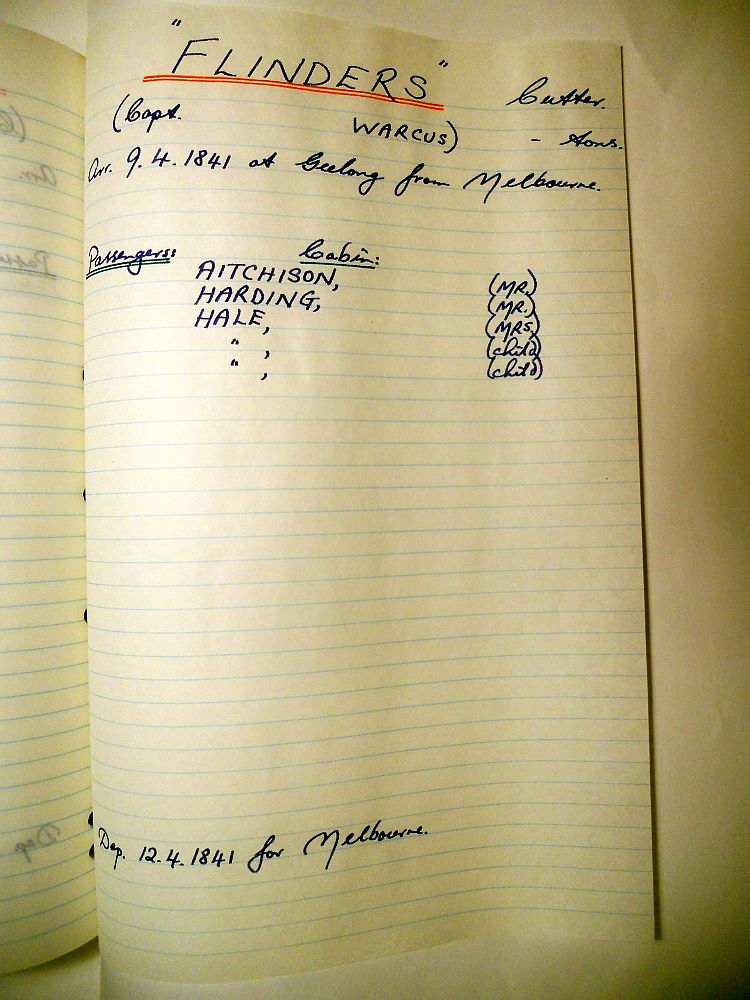 "FLINDERS" Cutter.
(Capt. WARCUS) - tons.
Arr. 9.4.1841 at Geelong from Melbourne.
Passengers: Cabin:
AITCHISON, (MR.)
HARDING, (MR.)
HALE, (MRS)
" , (child)
" , (child)
Dep. 12.4.1841 for Melbourne.